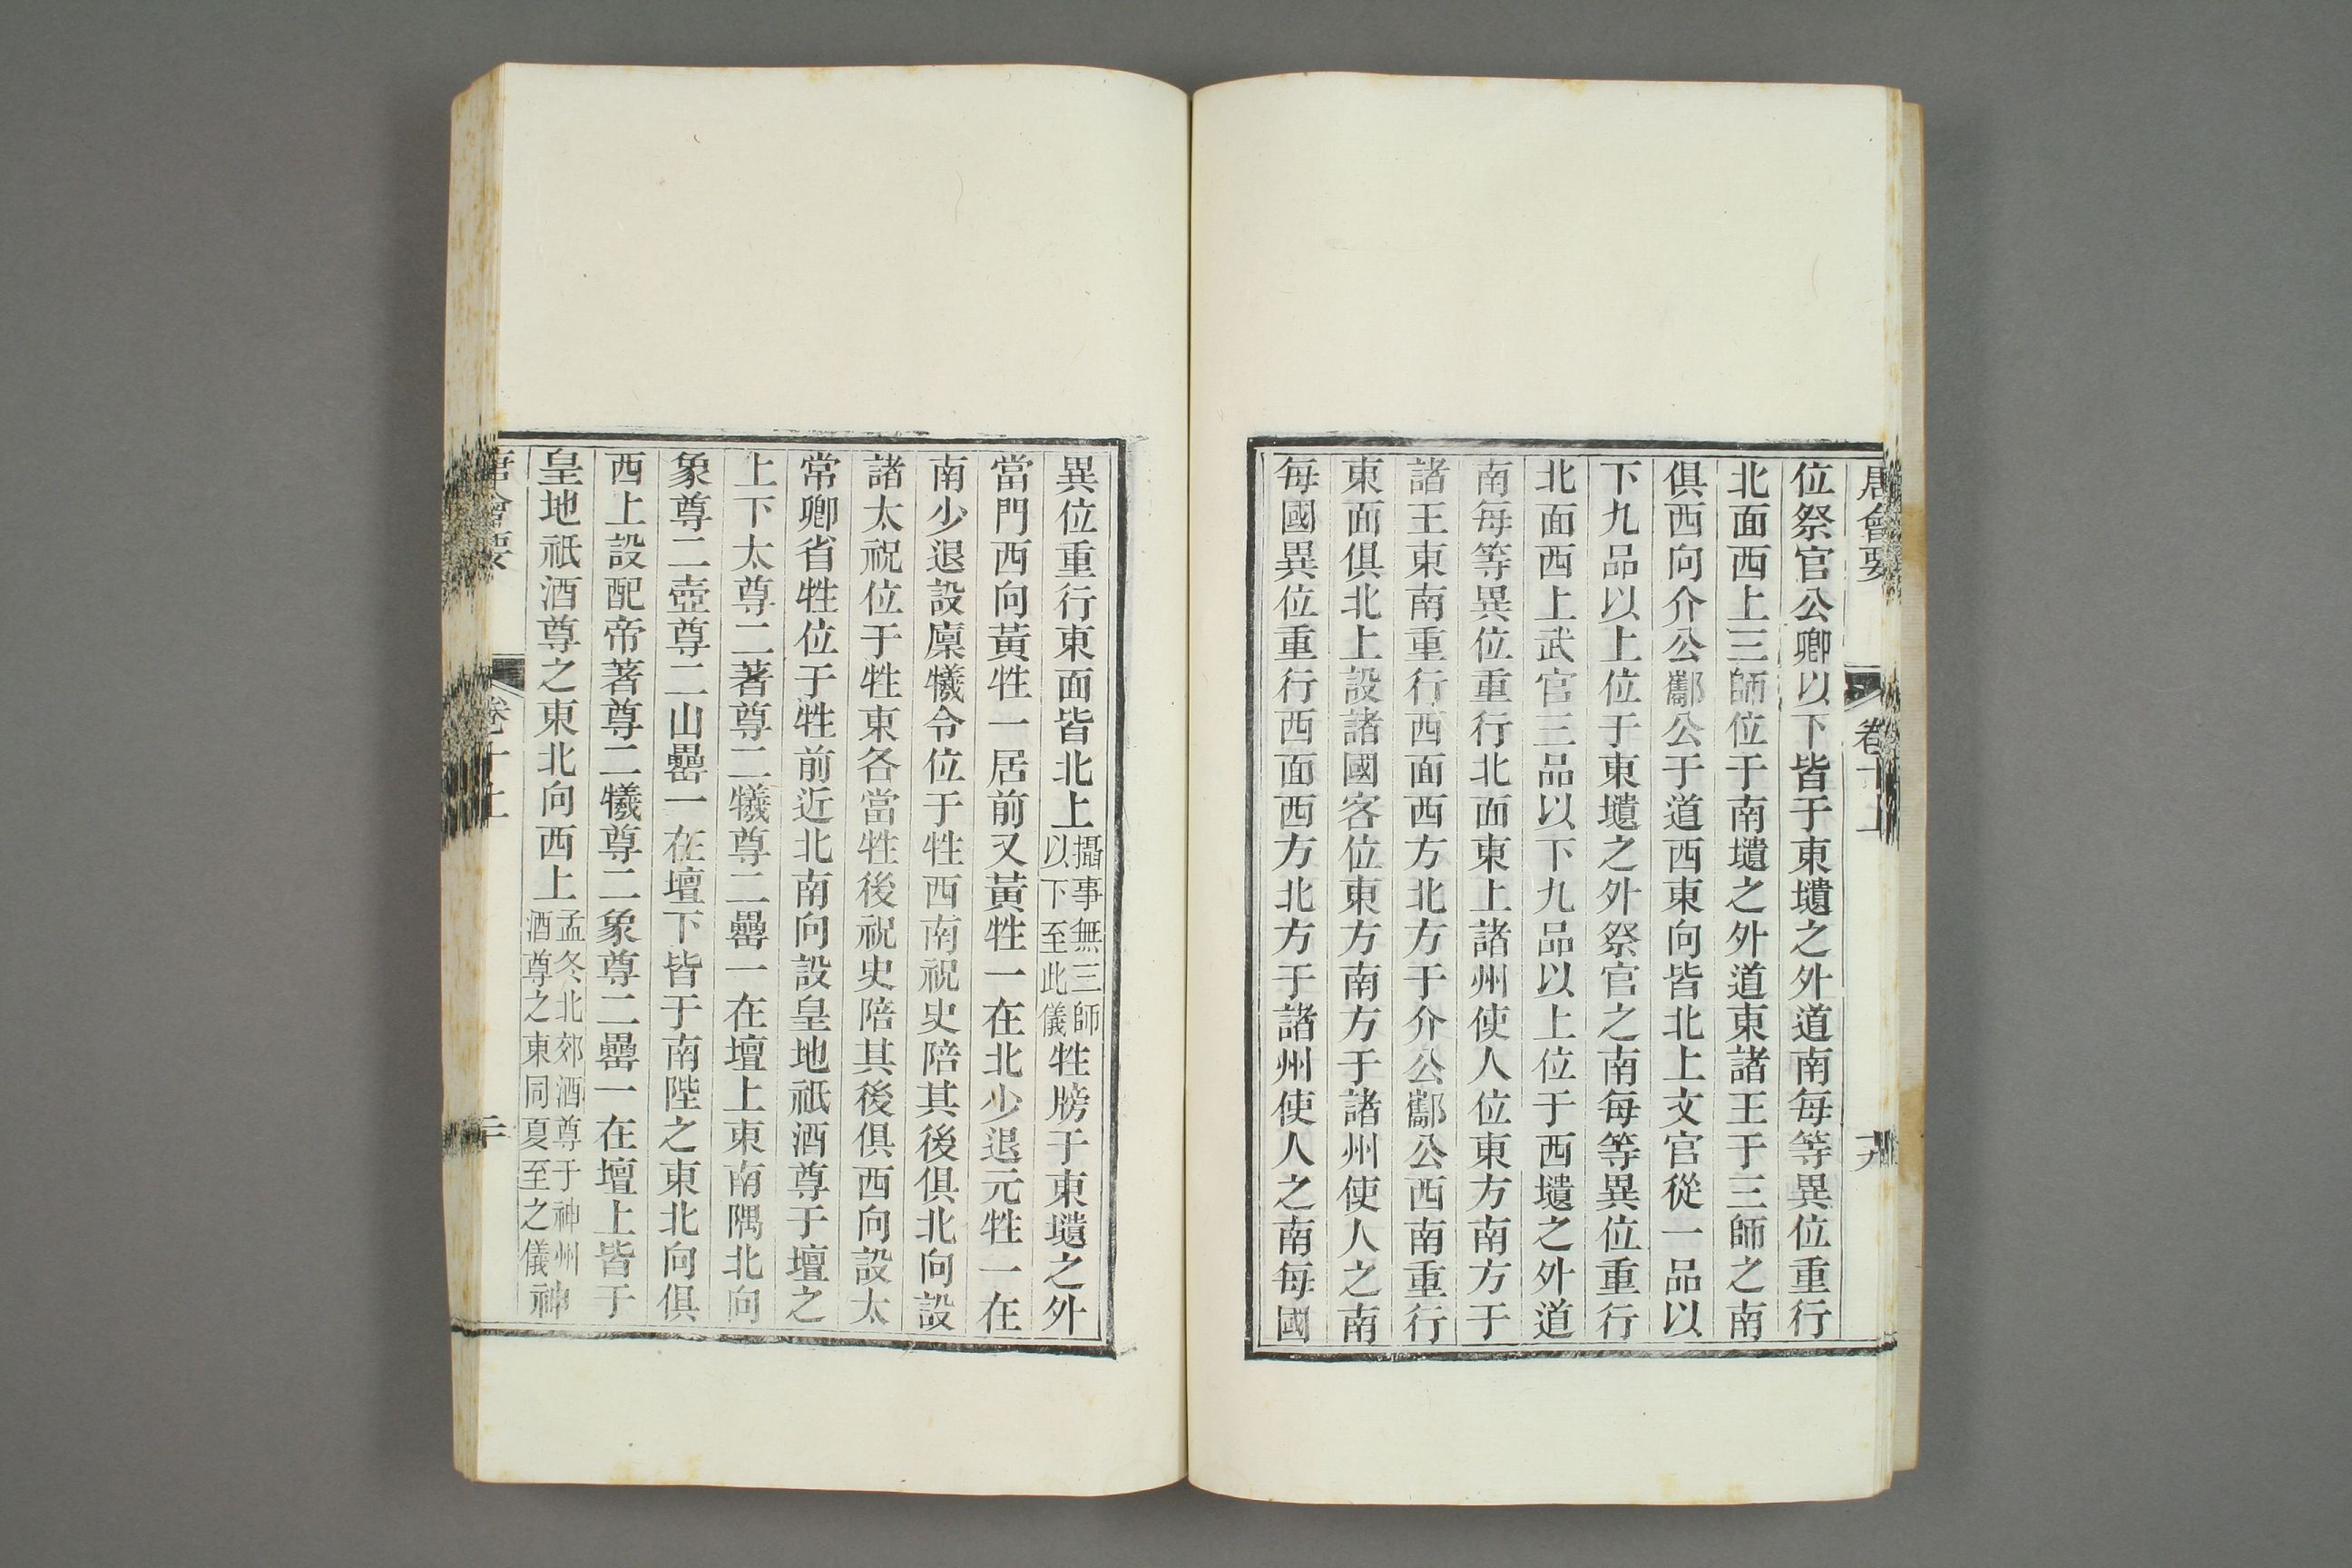 唐會要 卷十上
位祭官公卿以下皆于東壝之外道南每等異位重行
北面西上三師位于南壝之外道東諸王于三師之南
俱西向介公酅公于道西東向皆北上文官從一品以
下九品以上位于東壝之外祭官之南每等異位重行
北面西上武官三品以下九品以上位于西壝之外道
南每等異位重行北面東上諸州使人位東方南方于
諸王東南重行西面西方北方于介公酅公西南重行
東面俱北上設諸國客位東方南方于諸州使人之南
每國異位重行西面西方北方于諸州使人之南每國
異位重行東面皆北上攝事無三師以下至此儀牲牓于東壝之外
當門西向黃牲一居前又黃牲一在北少退元牲一在
南少退設廩犧令位于牲西南祝史陪其後俱北向設
諸太祝位于牲東各當牲後祝史陪其後俱西向設太
常卿省牲位于牲前近北南向設皇地祇酒尊于壇之
上下太尊二著尊二犧尊二罍一在壇上東南隅北向
象尊二壺尊二山罍一在壇下皆于南陛之東北向俱
西上設配帝著尊二犧尊二象尊二罍一在壇上皆于
皇地祇酒尊之東北向西上孟冬北郊酒尊于神州酒尊之東同夏至之儀神
唐會要 卷十上